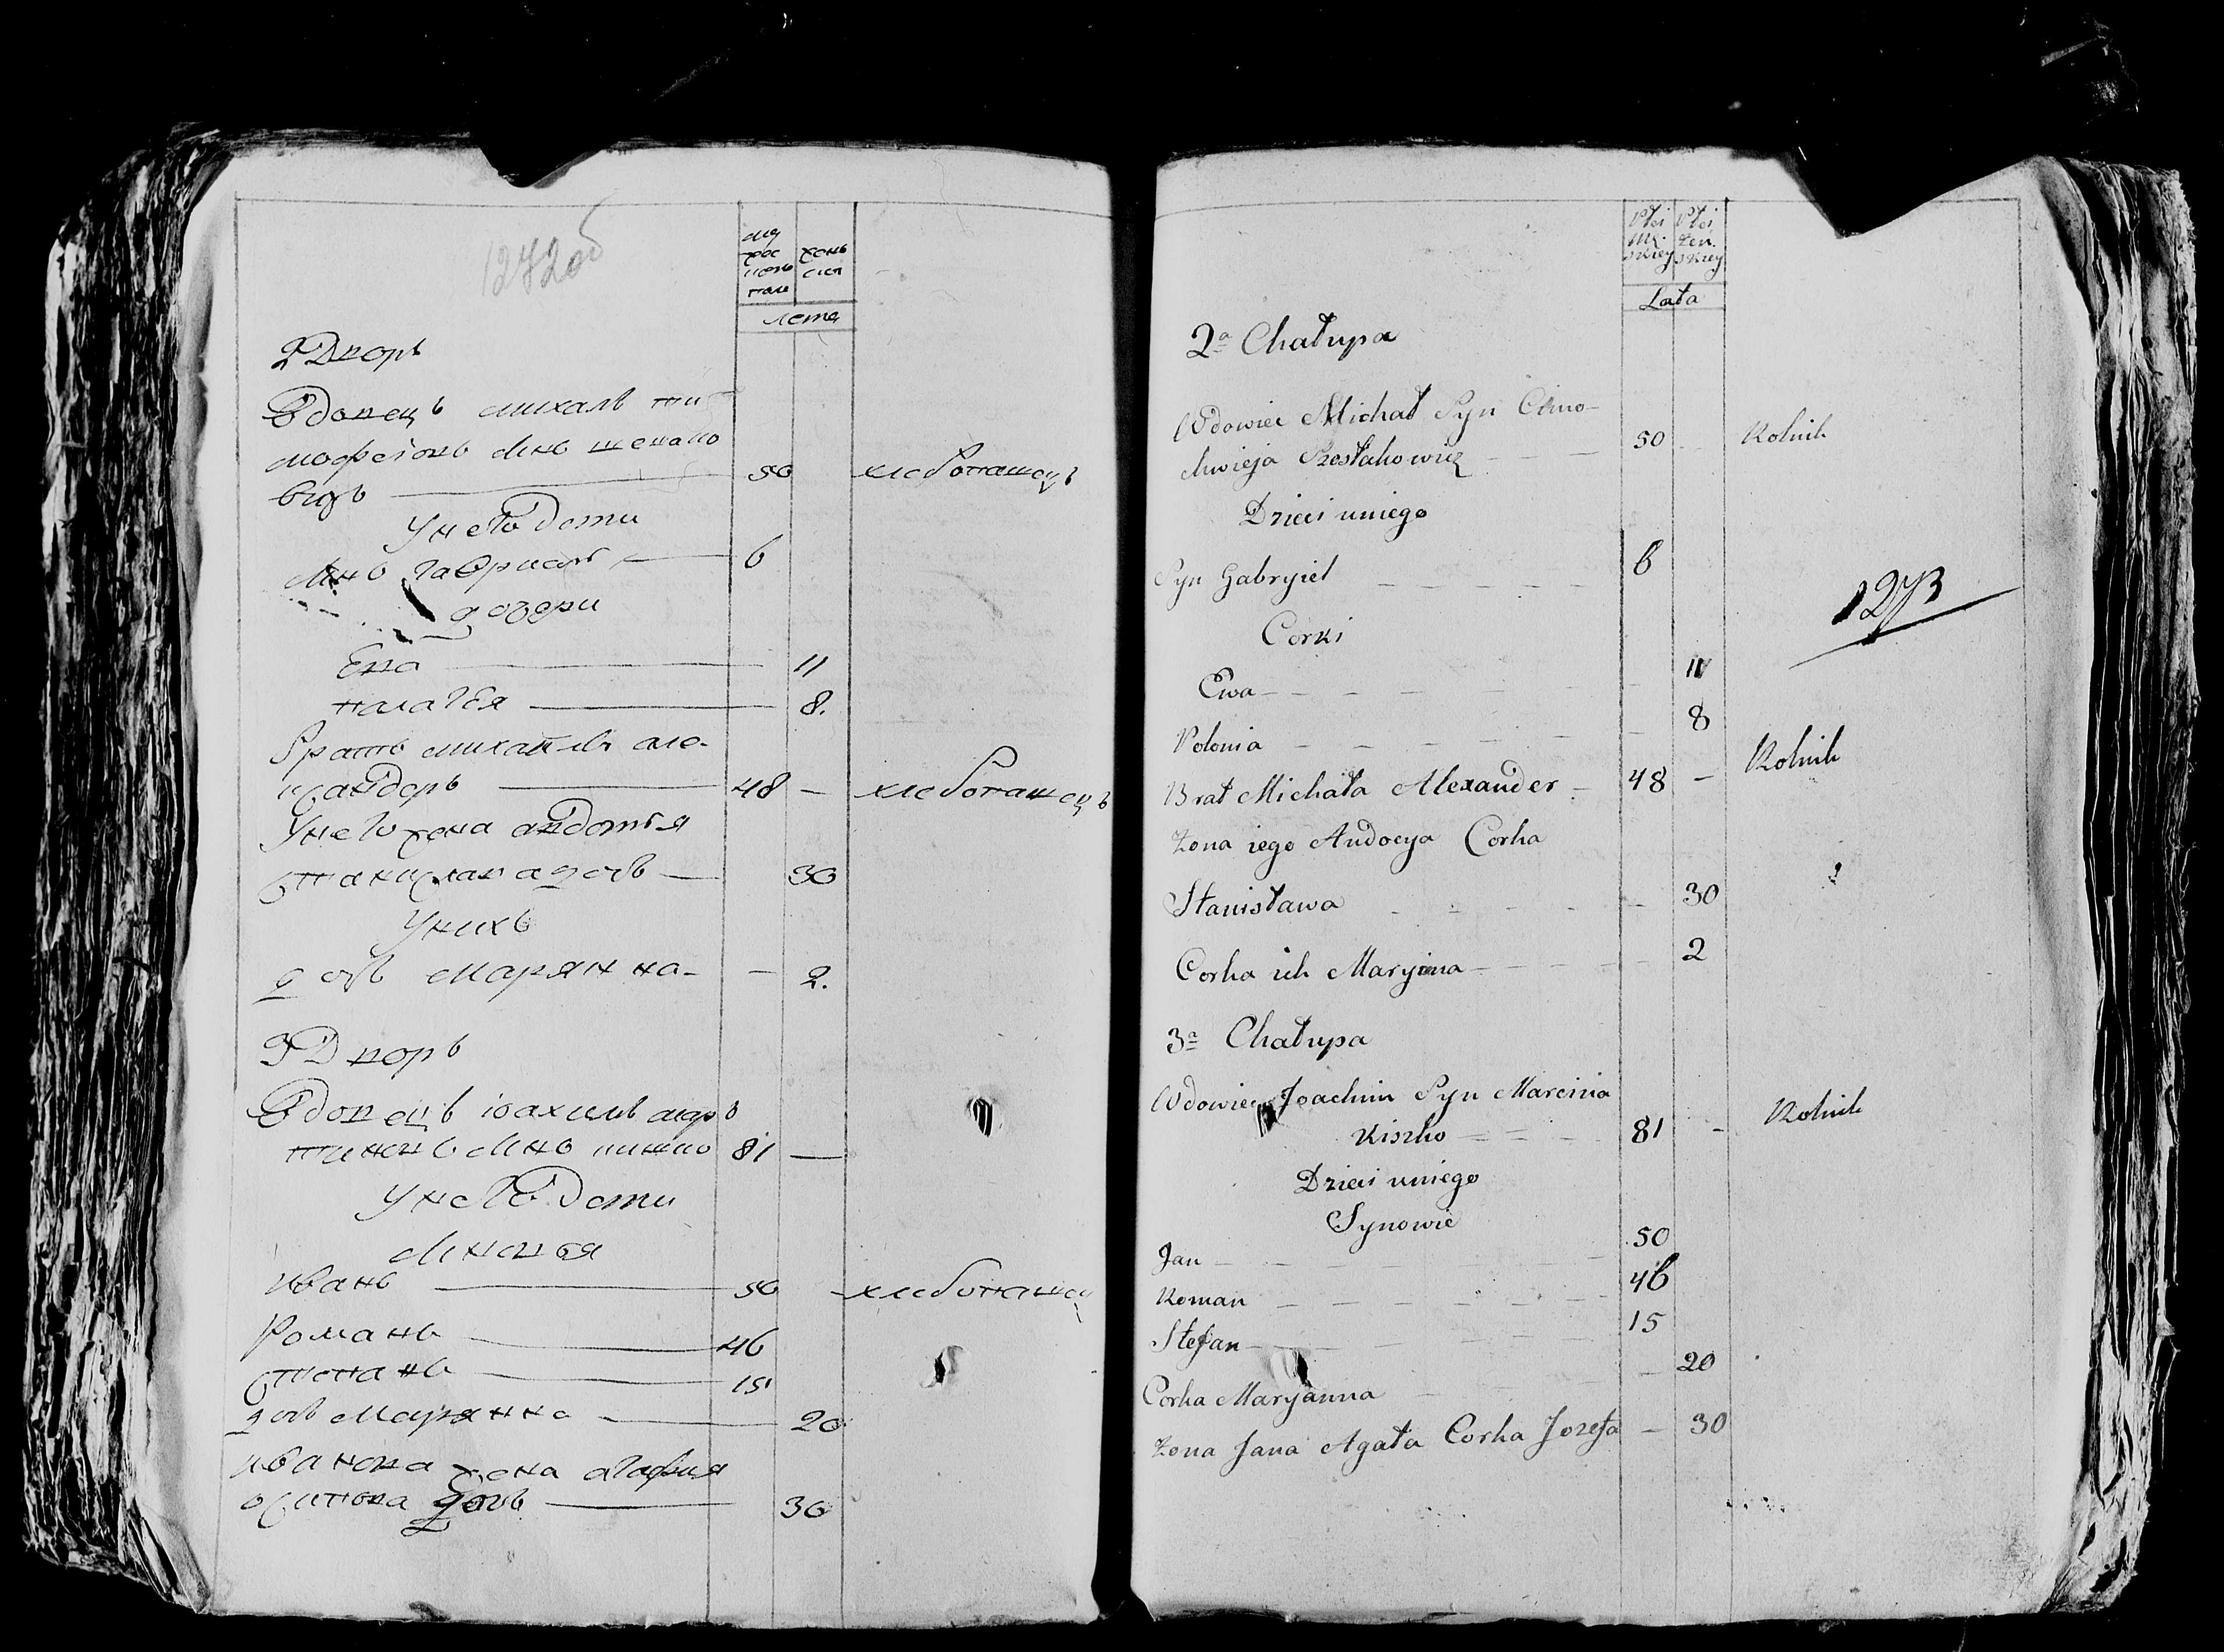 1272об
муж
ско
полу
женъ
ска
лета
2 Дворъ
Вдовецъ михалъ ти-
мофеювъ синъ
вичъ 50 хлебопашецъ
У него дети
Синъ гавриелъ 6
дочери
Ева 11
палагея 8.
Братъ михаловъ але-
ксандеръ 48 — хлебопашецъ
У него жена авдотья
станислава дочь 30
У нихъ
дочь Марянна — 2.
3 Дворъ
Вдовецъ иоахимъ мар
тиновъ синъ кишко 81 —
У него дети
Синовья
Иванъ 50 хлебопашец
Романъ 46
степанъ 15
дочь Марянна 20
Иванова жена агафия
осипова дочь 30
Płci
Mę-
skiey
Płci
Żeń.
skiey
Lata
2a Chałupa
Wdowiec Michał Syn Cimo-
chwieja Szostakowicz 50 Rolnik
Dzieci uniego
Syn Gabryiel 6
1273
Corki
Ewa 11
Polonia 8
Brat Michała Alexander 48 Rolnik
Zona iego Audocya Corka
Stanisława 30
Corka ich Maryanna 2
3a Chałupa
Wdowiec Joachim Syn Marcina
Kiszko 81 Rolnik
Dzieci uniego
Synowie
Jan 50
Roman 46
Stefan 15
Corka Maryanna 20
Zona Jana Agata Corka Jozefa 30